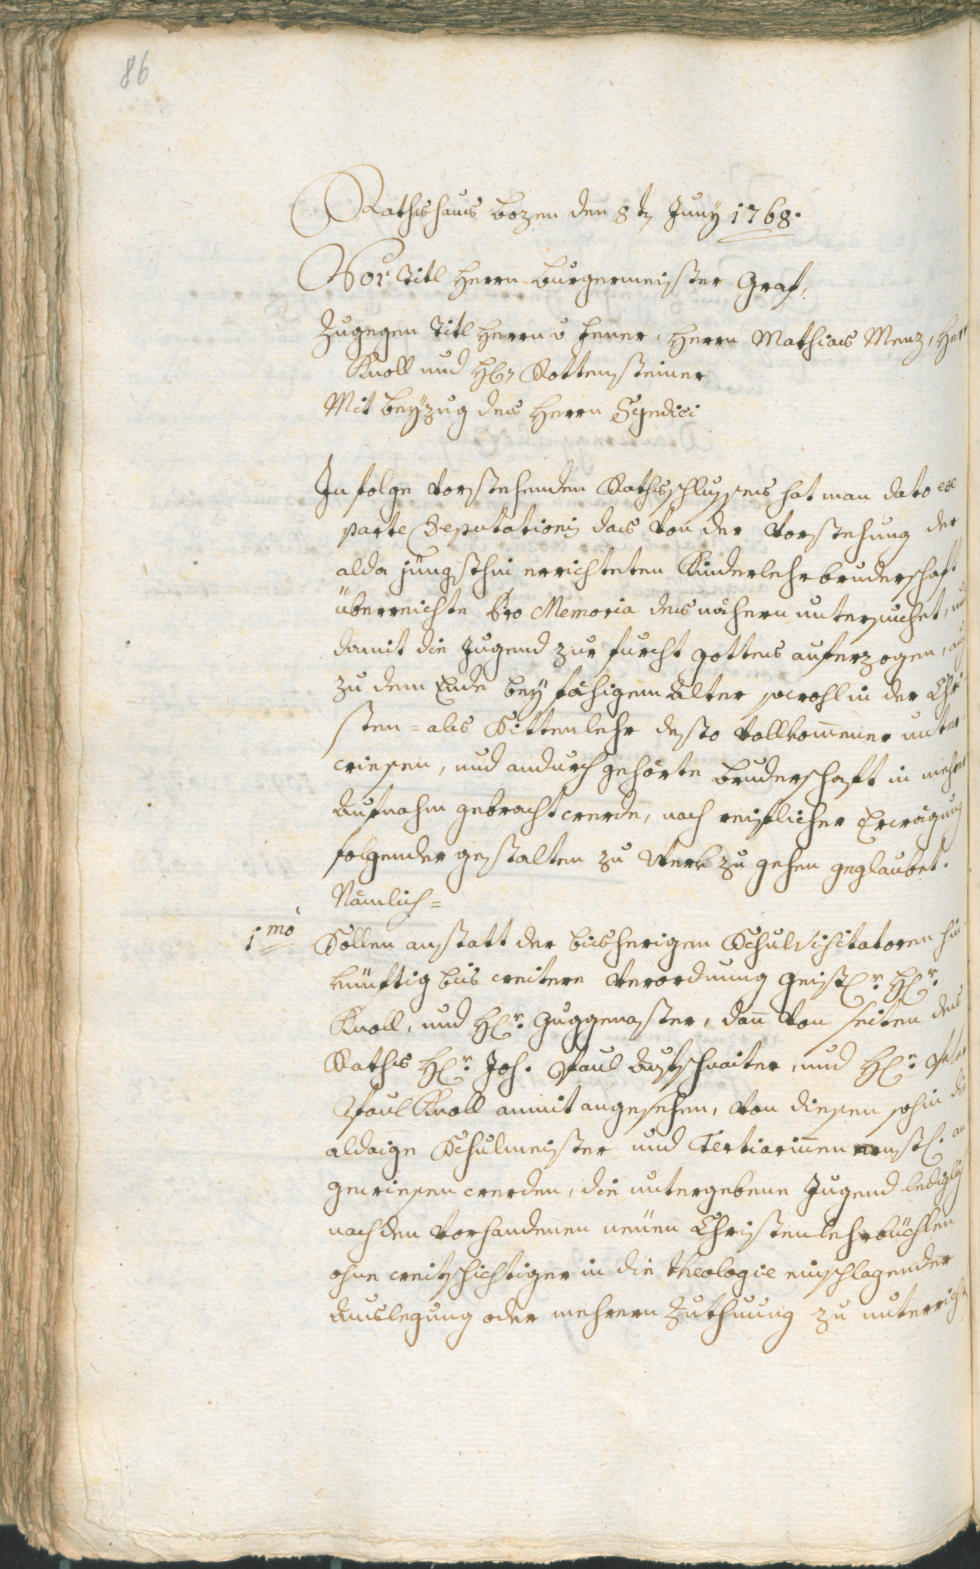 86
Rathshaus Bozen den 8t(en) Juny 1768.
Vor Titl Herrn Burgermeister Graf,
Zugegen Titl Herrn v Hener, Herrn Mathias Menz, Herr
Knoll und H(er)r Rottensteiner
Mit beyzug des Herrn Syndici
In folge vorstehenden Rathsschlusses hat man dato ex
parte Deputationis das von der Vorstehung der
alda jüngsthin errichteten Kinderlehrbruderschaft
überreichte Pro Memoria des nähern untersuchet, und
damit die Jugend zur furcht gottes auferzogen,
zu dem Ende bey fähigem Alter sowohl in der Chri
sten= als Sittenlehr desto vollkom̅ener unter
wiesen, und andurch gehörte Bruderschaft in mehrer
Aufnahm gebracht werde, nach reiflicher Erwägung
folgender gestalten zu Werk zu gehen geglaubet.
Nämlich=
1mo Sollen anstatt der bisherigen Schulvisitatoren hin
künftig bis weitere Verordnung geistl(iche)r H(er)r
Knoll, und H(er)r Guggenoster, dan̅ von seiten des
Raths H(er)r Joh. Paul Aufschnaiter, und H(er)r Peter
Paul Knoll anmit angesehen, von diesen sohin die
aldaige Schulmeister und Tertiarin̅en ernstl. an
gewiesen werden, die untergebene Jugend lediglich
nach den vorhandenen neüen Christenlehrbüchlen
ohne weitschichtiger in die Theologie einschlagender
Auslegung oder mehrern Zuthuung zu unterricht